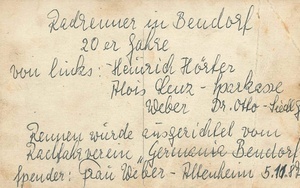 Radrenner in Bendorf
20er Jahre
von links: Heinrich Hörter
Alois Lenz - Sparkasse
Weber Dr.-Otto-Siedlg
Rennen wurde ausgerichtet vom
Radfahrverein „Germania Bendorf
Spender: Frau Weber - Altenheim 5.10.87